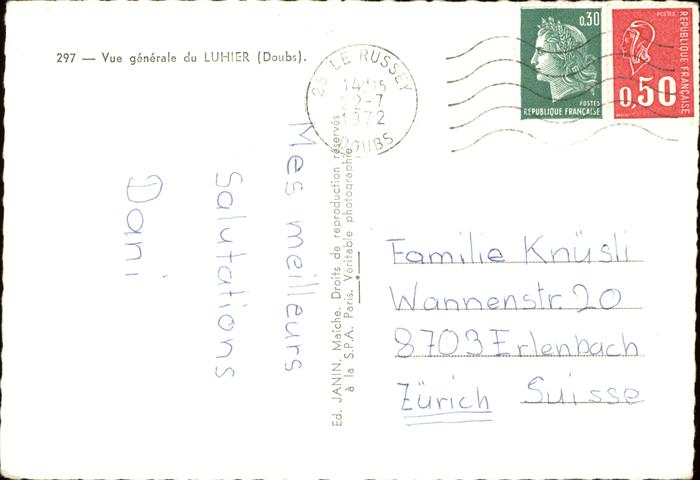 297 — Vue générale du LUHIER (Doubs).
25 LE RUSSEY
22-7
1972
DOUBS
0,30
POSTES
REPUBLIQUE FRANÇAISE
POSTES
REPUBLIQUE FRANÇAISE
0,50
Mes meilleurs
Salutations
Dani
Ed. JANIN, Maiche. Droits de reproduction réservés
à la S.P.A. Paris. Véritable photographie
Familie Knüsli
Wannenstr. 20
8703 Erlenbach
Zürich Suisse